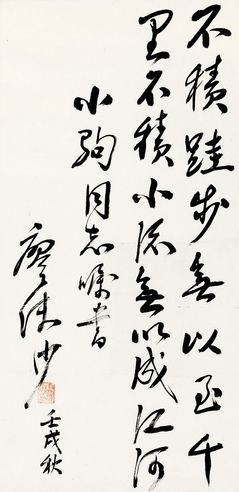 不積跬步無以至千
里不積小流無以成江河
小駒同志囑書
廖沫沙
壬戌秋